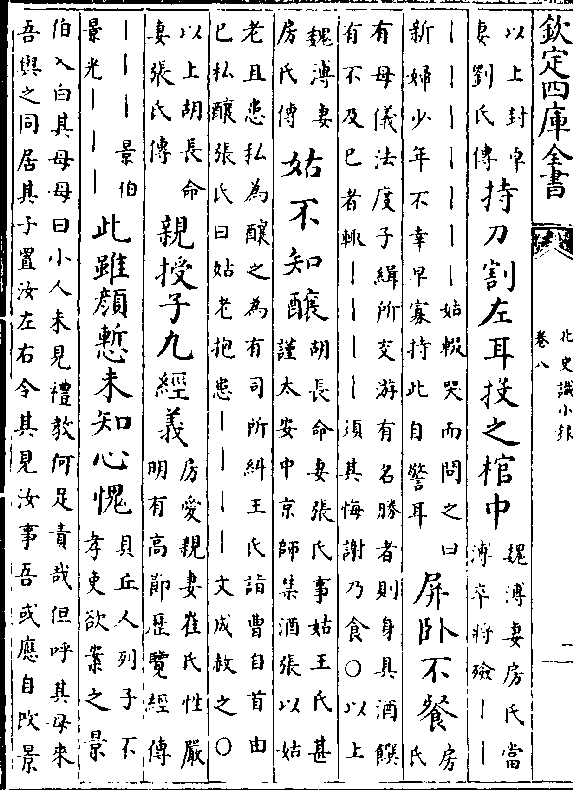 欽定四庫全書
北史識小錄
卷八
二
以上封卓
妻劉氏傳
持刀割左耳投之棺中
魏溥妻房氏當
溥卒將殮｜｜
｜｜｜｜｜｜｜姑輟哭而問之曰
新婦少年不幸早寡持此自警耳
屏卧不餐
房
氏
有母儀法度子緝所交游有名勝者則身具酒饌
有不及已者輒｜｜｜｜須其悔謝乃食○以上
魏溥妻
房氏傳
姑不知釀
胡長命妻張氏事姑王氏甚
謹太安中京師集酒張以姑
老且患私為釀之為有司所糾王氏詣曹自首由
已私釀張氏曰姑老抱患｜｜｜｜文成赦之○
以上胡長命
妻張氏傳
親授子九經義
房愛親妻崔氏性嚴
明有高節歷覽經傳
｜｜｜景伯
景光｜｜｜
此雖顔慙未知心愧
貝丘人列子不
孝吏欲案之景
伯入白其母母曰小人未見禮教何足責哉但呼其母來
吾與之同居其子置汝左右令其見汝事吾或應自改景